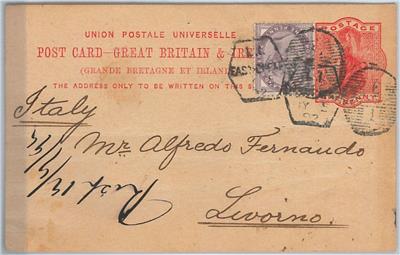 UNION POSTALE UNIVERSELLE
POST CARD–GREAT BRITAIN & IRE
(GRANDE BRETAGNE ET IRLAN
THE ADDRESS ONLY TO BE WRITTEN ON THIS S
POSTAGE
PENNY
Italy
Mr Alfredo Fernando
Livorno.